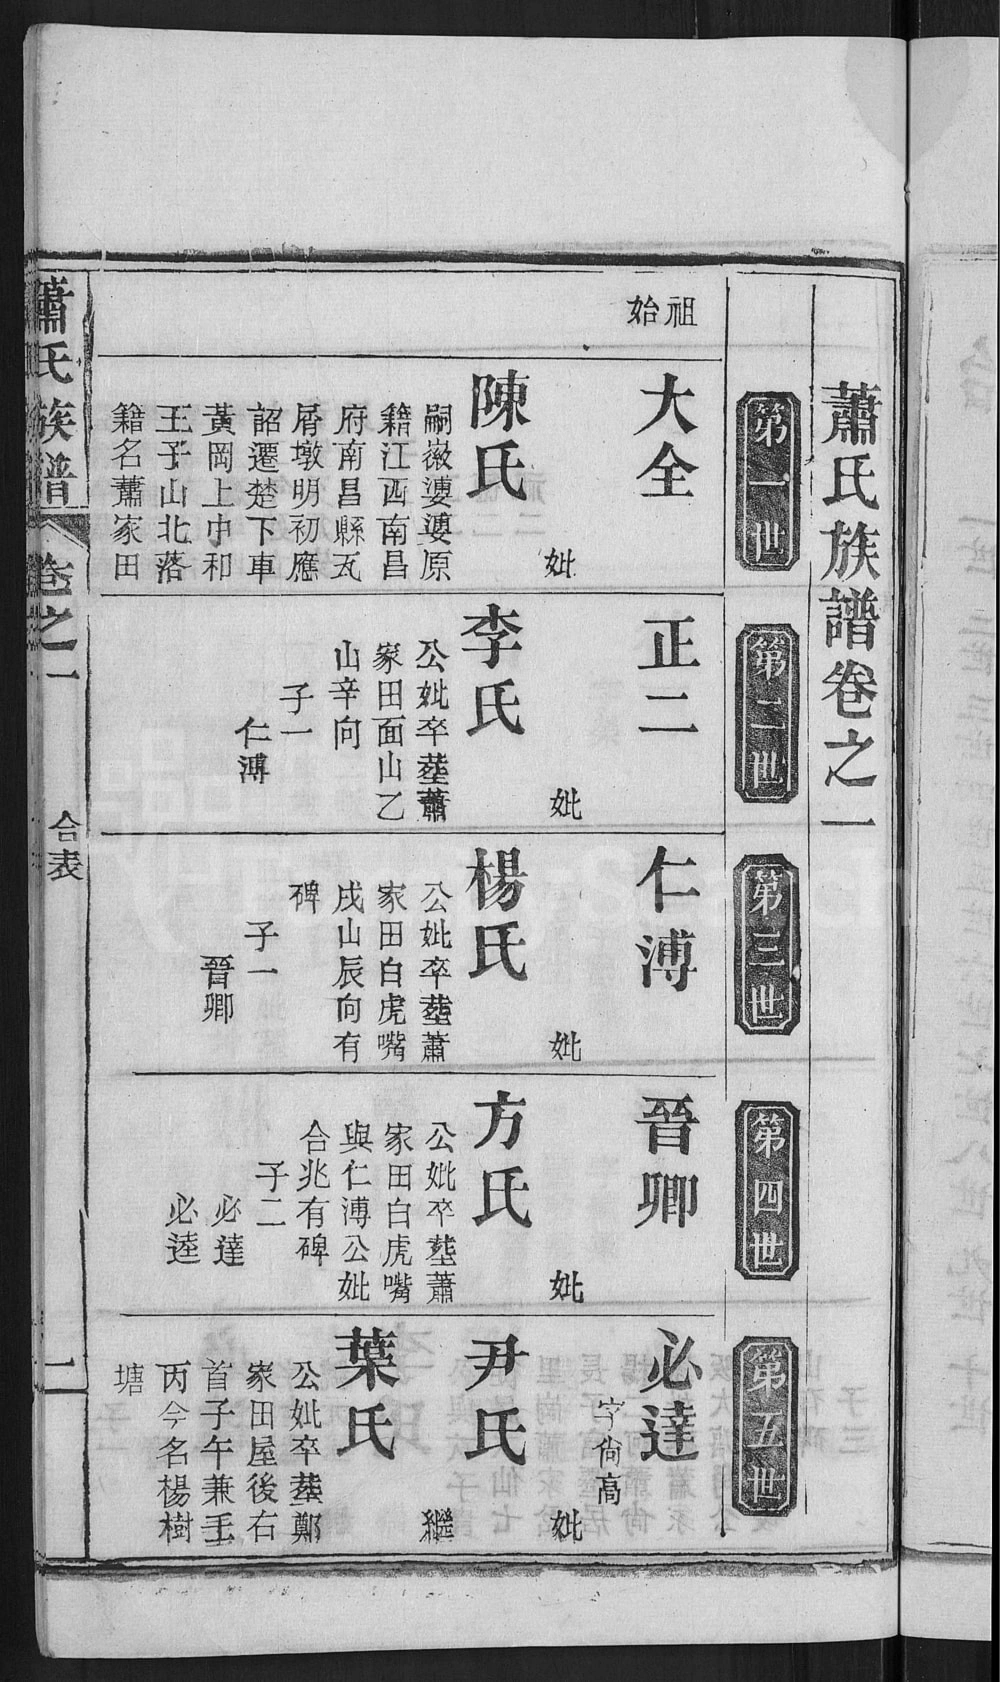 蕭氏族譜卷之一
第一世
始祖
大全
妣
陳氏
嗣嶶婆婆原
籍江西南昌
府南昌縣瓦
屑墩明初應
詔遷楚下車
黃岡上中和
王子山北落
籍名蕭家田
第二世
正二
妣
李氏
公妣卒塟蕭
家田面山乙
山辛向
子一
仁溥
第三世
仁溥
妣
楊氏
公妣卒塟蕭
家田白虎嘴
戌山辰向有
碑
子一
晉卿
第四世
晉卿
妣
方氏
公妣卒塟蕭
家田白虎嘴
與仁溥公妣
合兆有碑
子二
必達
必逵
第五世
必達
字尙高
妣
尹氏
繼
葉氏
公妣卒塟鄭
家田屋後右
首子午兼壬
丙今名楊樹
塘
蕭氏族譜
卷之一
合表
一